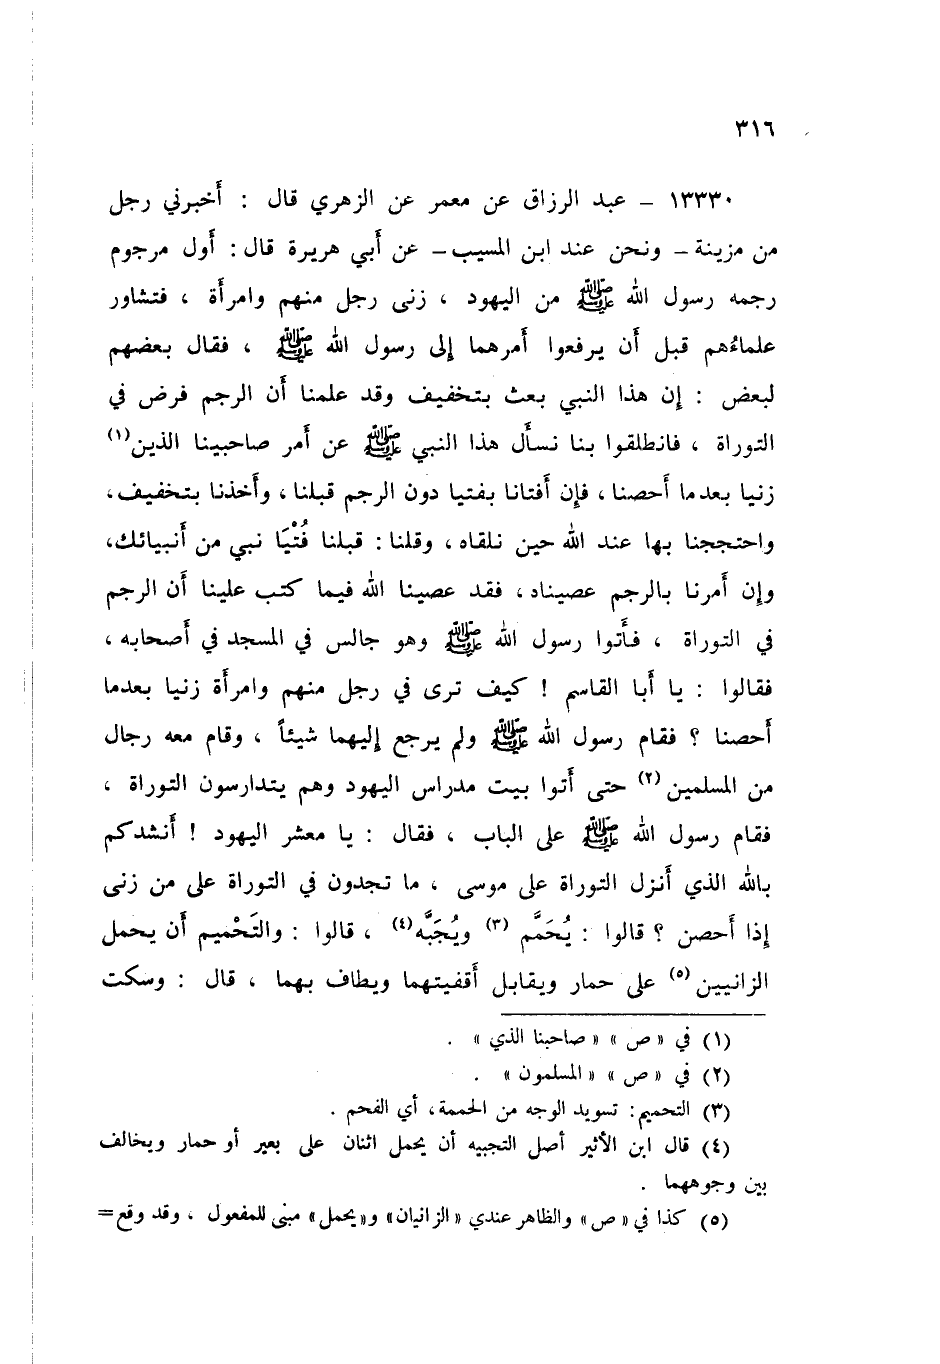 ٣١٦
١٣٣٣٠ – عبد الرزاق عن معمر عن الزهري قال : أَخبرني رجل
من مزينة – ونحن عند ابن المسيب – عن أَبي هريرة قال : أَول مرجوم
رجمه رسول الله ﷺ من اليهود ، زنى رجل منهم وامرأَة ، فتشاور
علماءُهم قبل أَن يرفعوا أَمرهما إلى رسول الله ﷺ ، فقال بعضهم
لبعض : إن هذا النبي بعث بتخفيف وقد علمنا أَن الرجم فرض في
التوراة ، فانطلقوا بنا نسأَل هذا النبي ﷺ عن أَمر صاحبينا الذين(١)
زنيا بعدما أَحصنا ، فإن أَفتانا بفتيا دون الرجم قبلنا ، وأَخذنا بتخفيف ،
واحتججنا بها عند الله حين نلقاه ، وقلنا : قبلنا فُتْيَا نبي من أَنبيائك ،
وإن أَمرنا بالرجم عصيناه ، فقد عصينا الله فيما كتب علينا أَن الرجم
في التوراة ، فأَتوا رسول الله ﷺ وهو جالس في المسجد في أَصحابه ،
فقالوا : يا أَبا القاسم ! كيف ترى في رجل منهم وامرأَة زنيا بعدما
أَحصنا ؟ فقام رسول الله ﷺ ولم يرجع إليهما شيئاً ، وقام معه رجال
من المسلمين (٢) حتى أَتوا بيت مدراس اليهود وهم يتدارسون التوراة ،
فقام رسول الله ﷺ على الباب ، فقال : يا معشر اليهود ! أَنشدكم
بالله الذي أَنزل التوراة على موسى ، ما تجدون في التوراة على من زنى
إذا أَحصن ؟ قالوا : يُحَمَّم (٣) ويُجَبَّه(٤) ، قالوا : والتَحْميم أَن يحمل
الزانيين (٥) على حمار ويقابل أَقفيتهما ويطاف بهما ، قال : وسكت
(١) في « ص » « صاحبنا الذي » .
(٢) في « ص » « المسلمون » .
(٣) التحميم : تسويد الوجه من الحممة ، أي الفحم .
(٤) قال ابن الأثير أصل التجبيه أن يحمل اثنان على بعير أو حمار ويخالف
بين وجوههما .
(٥) كذا في « ص » والظاهر عندي « الزانيان » و« يحمل » مبنى للمفعول ، وقد وقع =